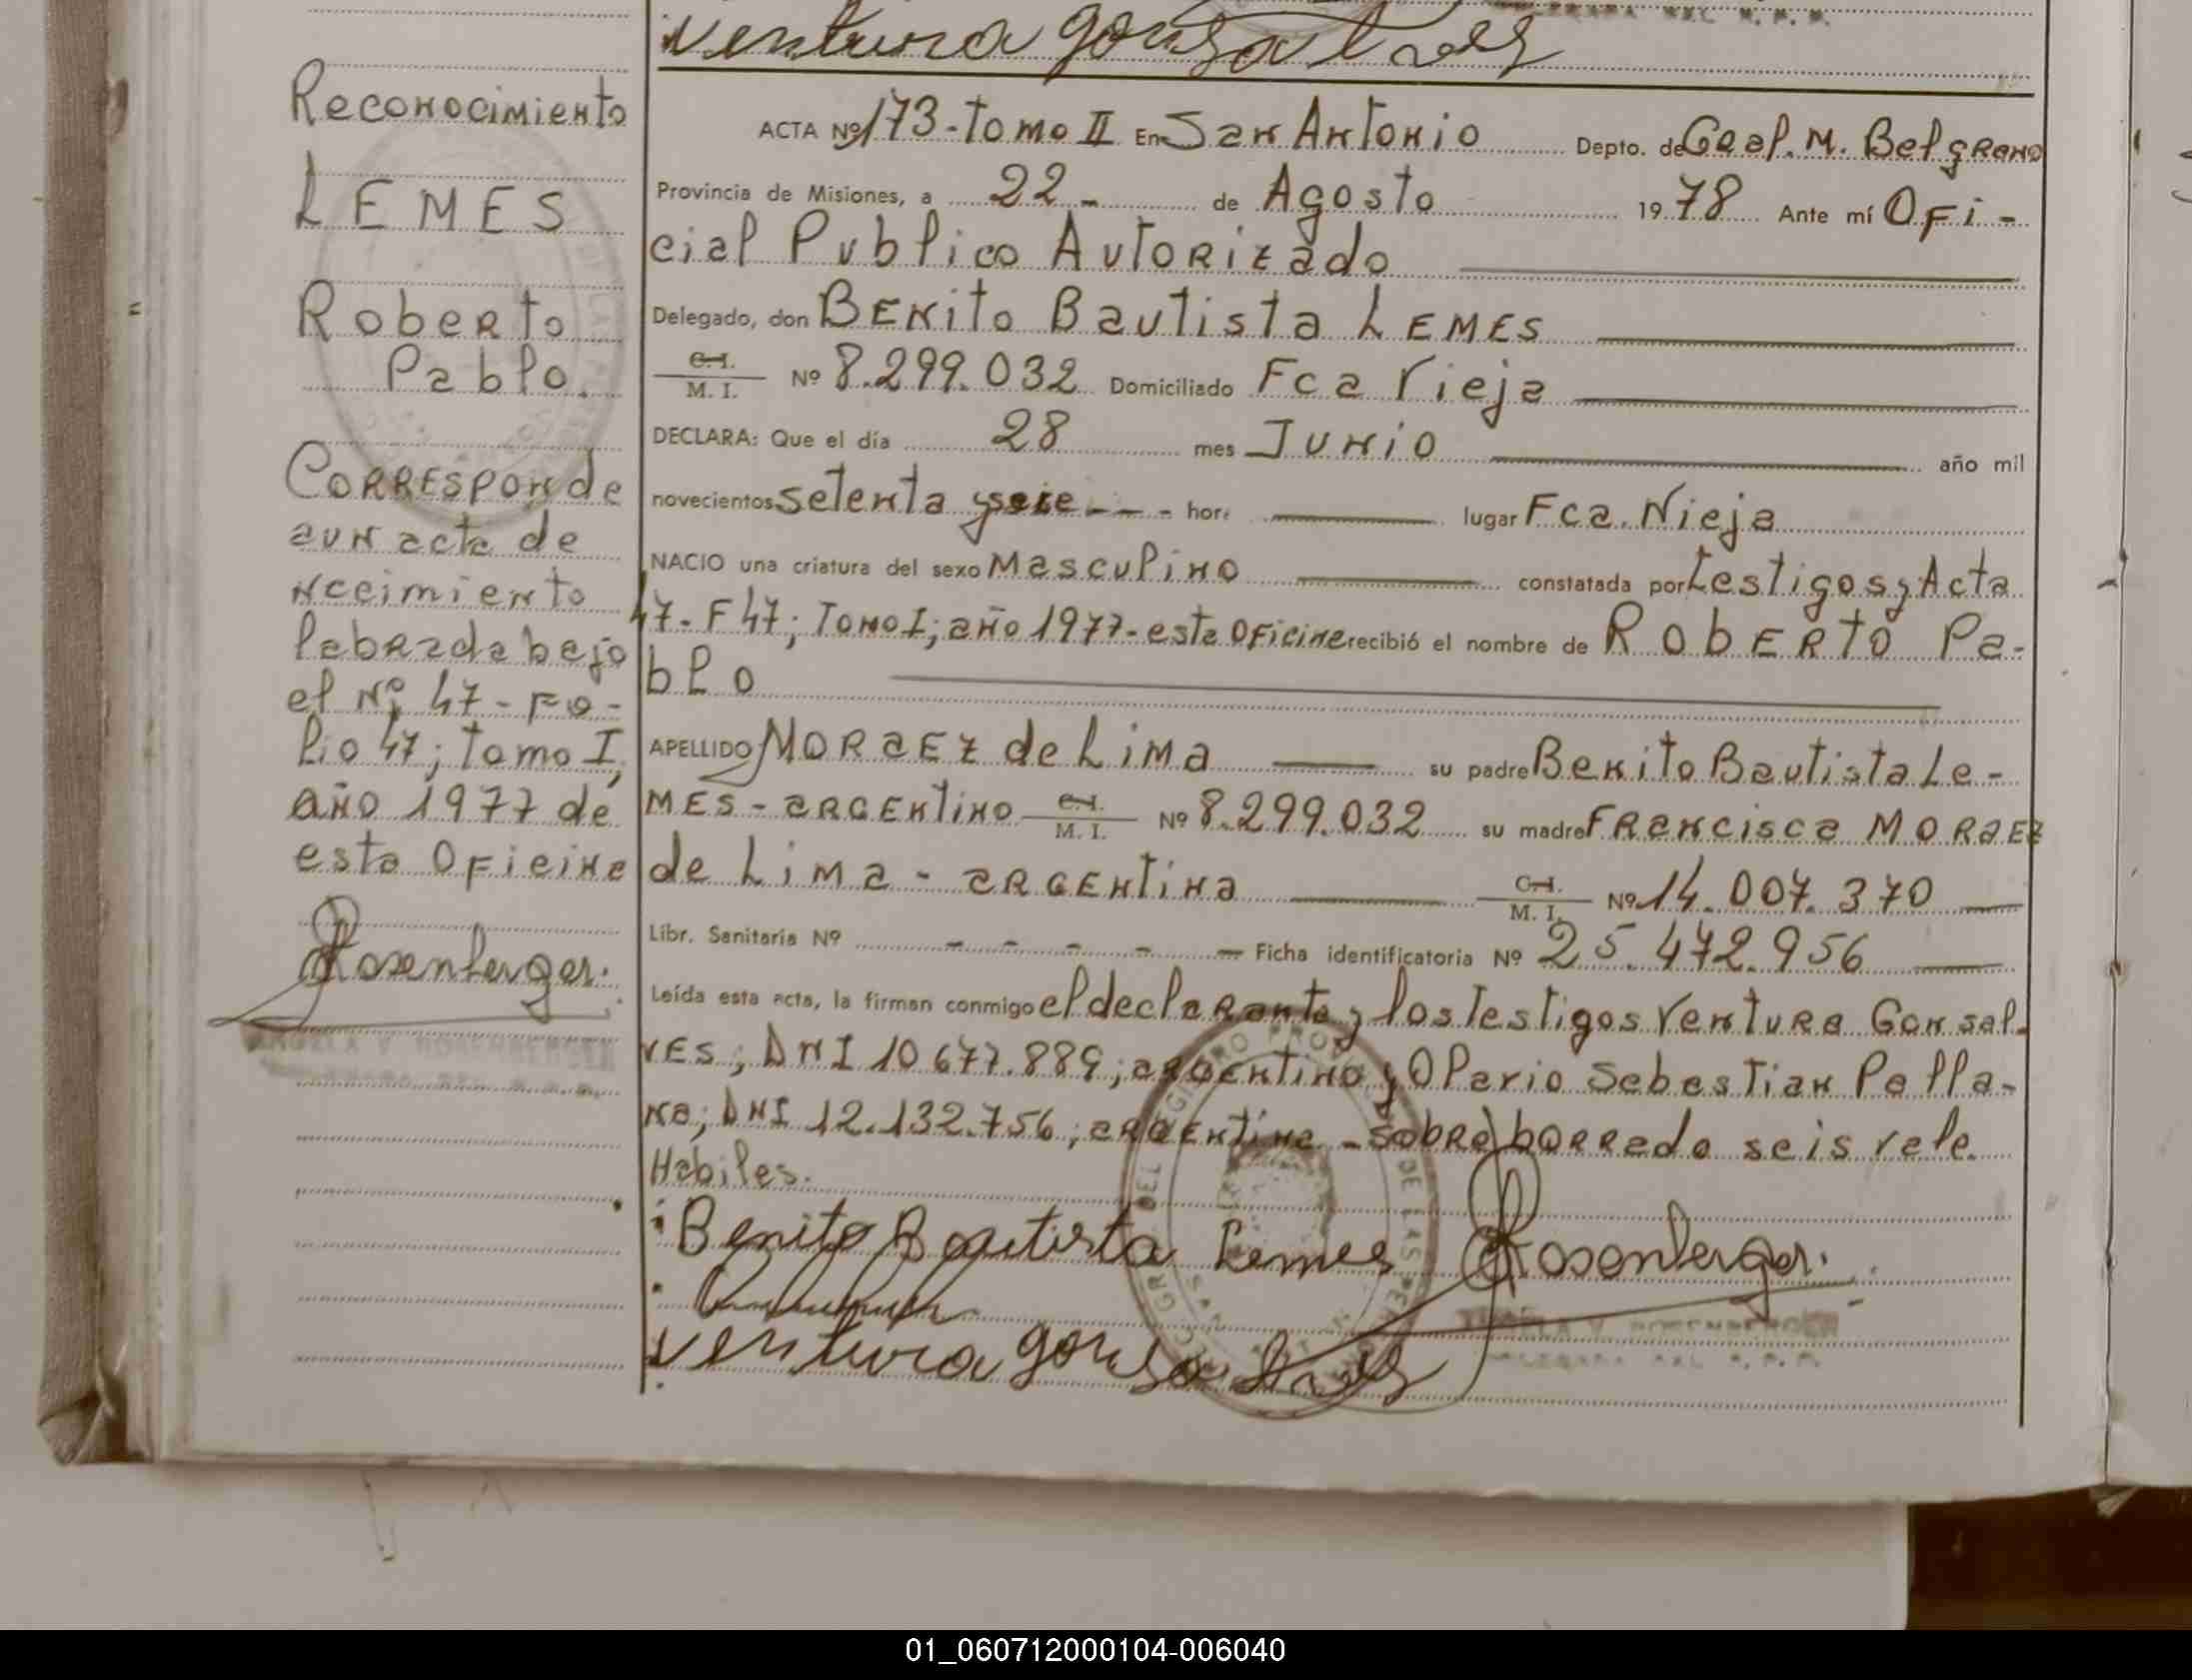 Ventura Gonsalves
Reconocimiento
LEMES
Roberto
Pablo.
Corresponde
a un acta de
nceimiento
labrada bajo
el Nº 47 - Fo-
lio 47; tomo I,
año 1977 de
esta Oficina
Rosenberger.
ACTA Nº 173 - Tomo II En San Antonio Depto. de Gral. M. Belgrano
Provincia de Misiones, a 22 - de Agosto 1978 Ante mí Ofi-
cial Publico Autorizado
Delegado, don Benito Bautista LEMES
C.I. / M. I. Nº 8.299.032 Domiciliado Fca Vieja
DECLARA: Que el día 28 mes Junio año mil
novecientos setenta y seis - - - hora lugar Fca. Vieja
NACIO una criatura del sexo Masculino constatada por Testigos y Acta
47 - F 47; Tomo I; año 1977 - esta Oficina recibió el nombre de ROBERTO Pa-
blo
APELLIDO MORAEZ de Lima su padre Benito Bautista Le-
MES - argentino C.I. / M. I. Nº 8.299.032 su madre Francisca MORAEZ
de Lima - argentina C.I. / M. I. Nº 14.007.370
Libr. Sanitaria Nº - - - - - Ficha identificatoria Nº 25.472.956
Leída esta acta, la firman conmigo el declarante y los Testigos Ventura Gonsal-
ves; DNI 10677.889; argentino y Olario Sebestian Pella-
na; DNI 12.132.756; argentina - sobre borrado seis vale.
Habiles.
Benito Bautista Lemes Rosenberger.
Ventura Gonsalves
01_060712000104-006040